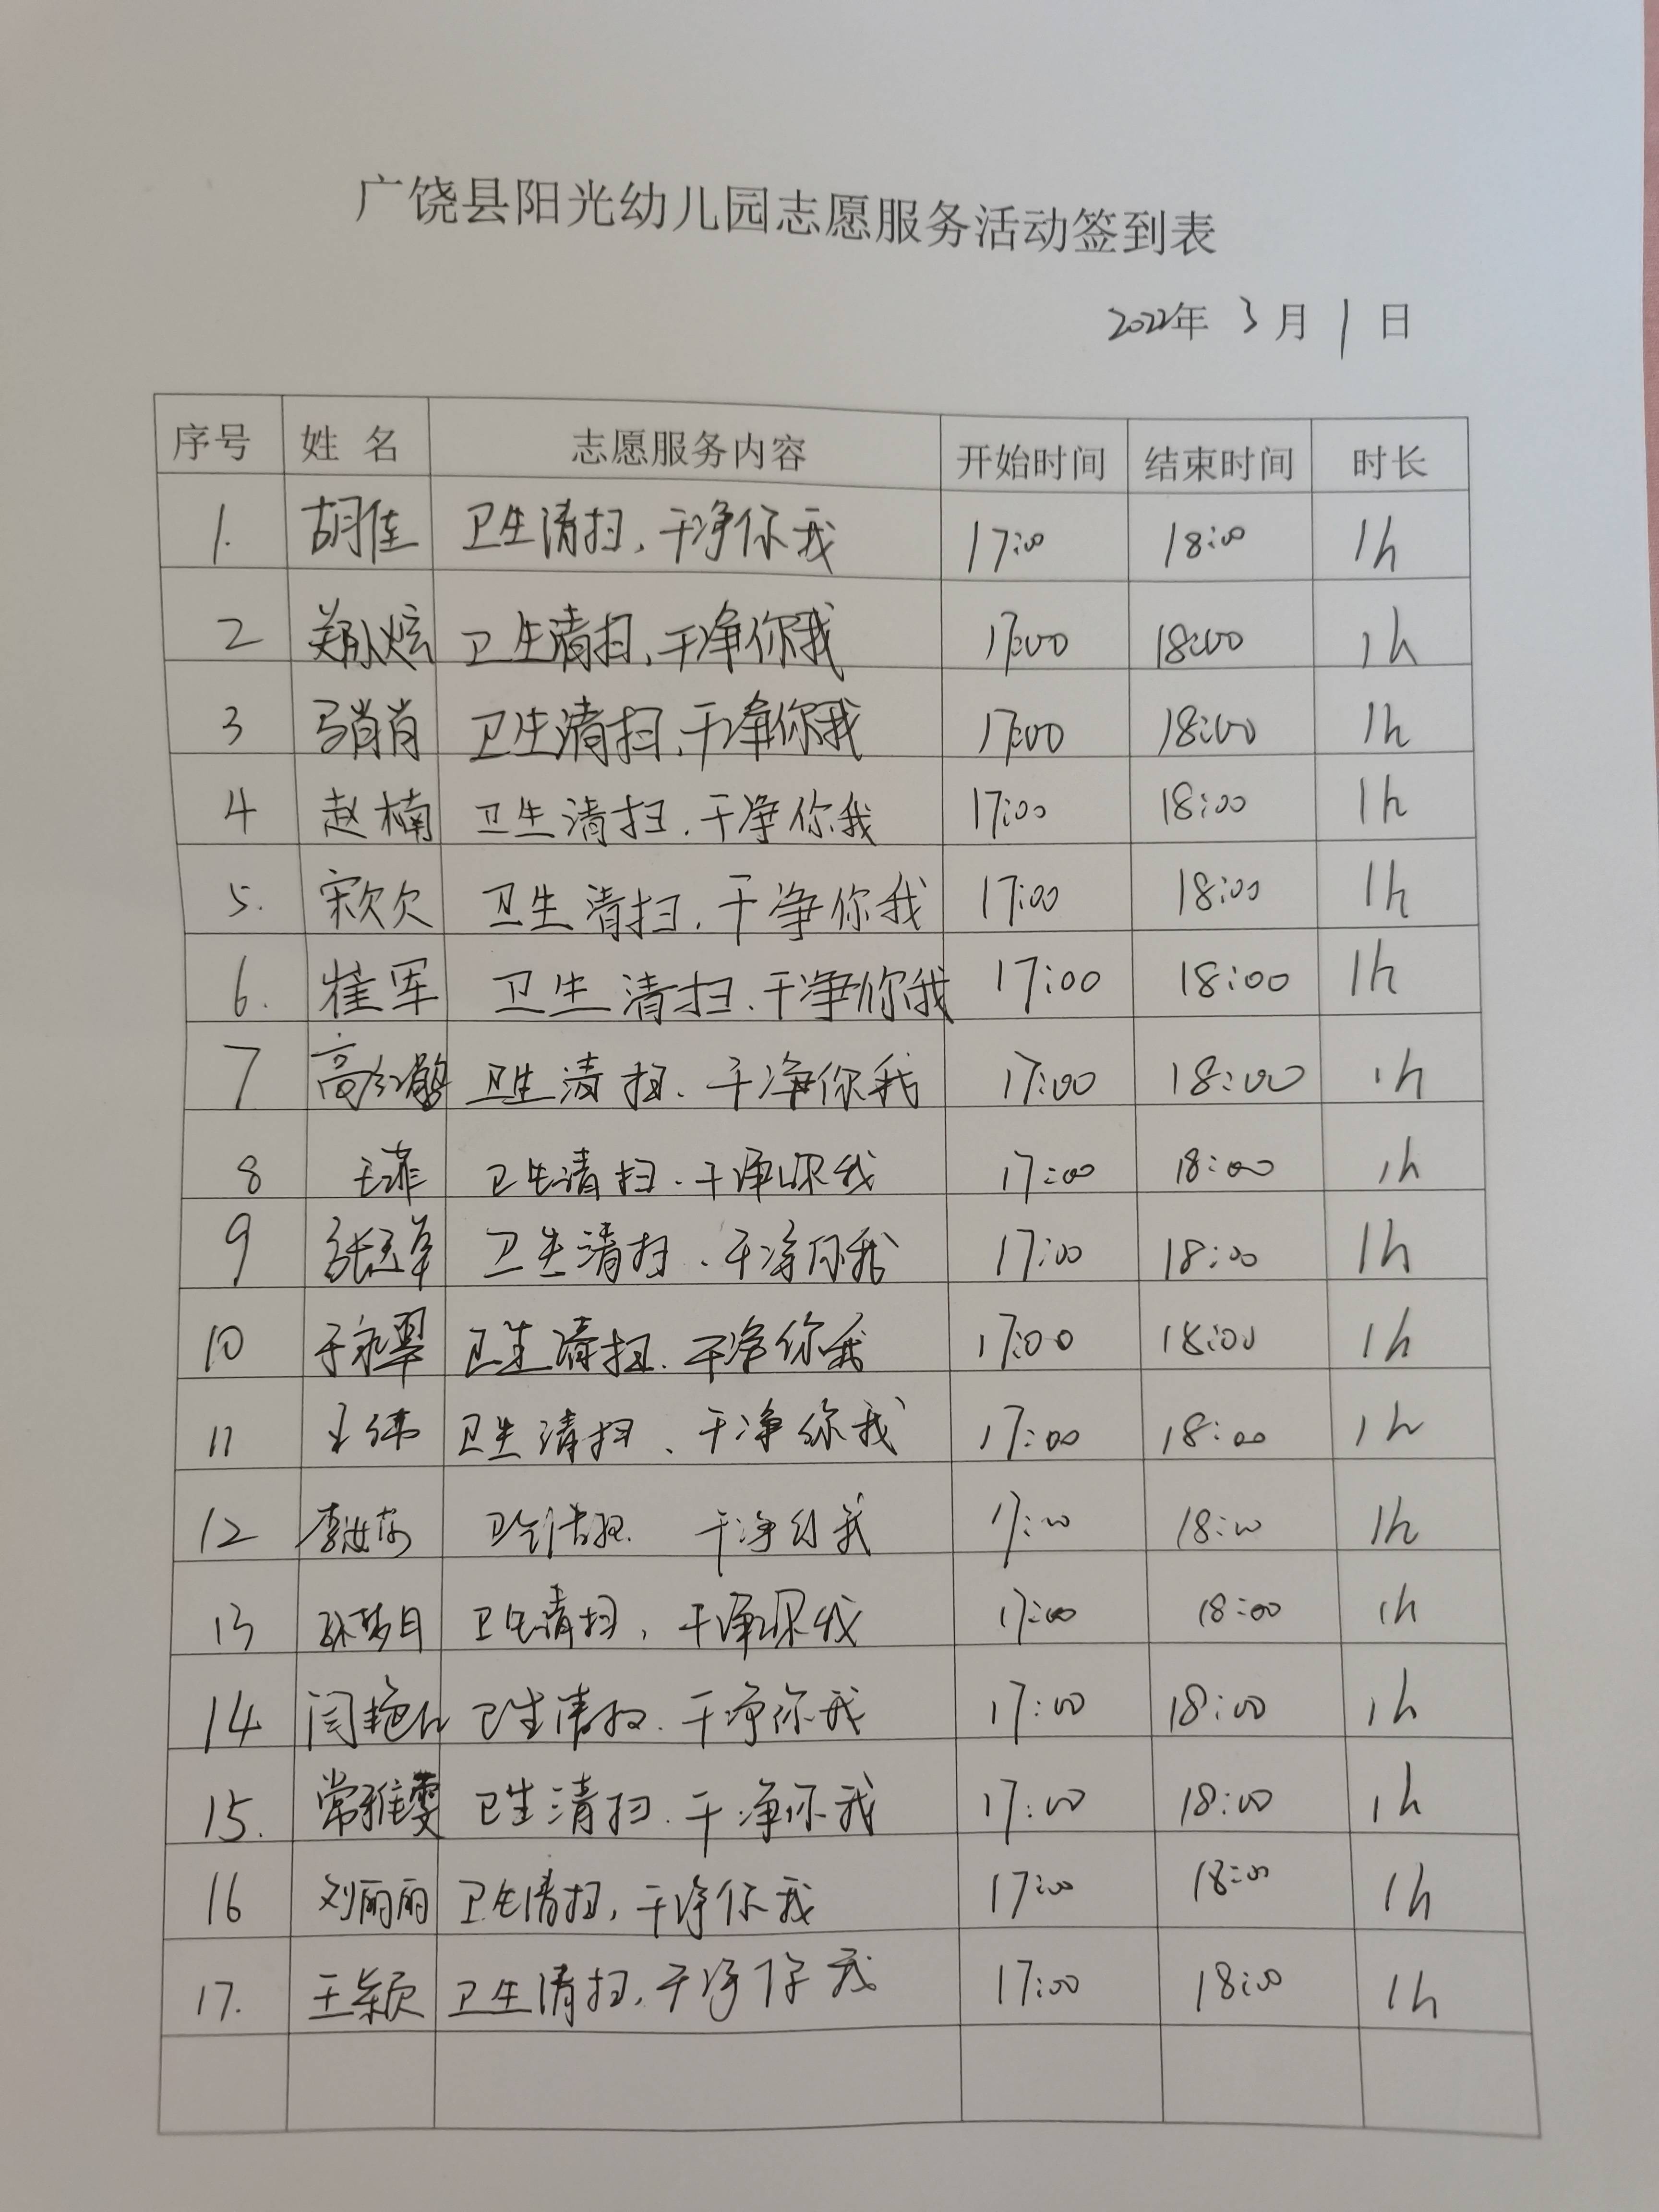 广饶县阳光幼儿园志愿服务活动签到表
2022年 3 月 1 日
序号 姓 名 志愿服务内容 开始时间 结束时间 时长
1. 胡佳 卫生清扫，干净你我 17:00 18:00 1h
2 郑永炫 卫生清扫，干净你我 17:00 18:00 1h
3 马肖肖 卫生清扫，干净你我 17:00 18:00 1h
4 赵楠 卫生清扫，干净你我 17:00 18:00 1h
5. 宋欠欠 卫生清扫，干净你我 17:00 18:00 1h
6. 崔军 卫生清扫，干净你我 17:00 18:00 1h
7 高红鹃 卫生清扫，干净你我 17:00 18:00 1h
8 王菲 卫生清扫，干净你我 17:00 18:00 1h
9 张玉革 卫生清扫，干净你我 17:00 18:00 1h
10 于永翠 卫生清扫，干净你我 17:00 18:00 1h
11 王伟 卫生清扫，干净你我 17:00 18:00 1h
12 李 卫生清扫 干净你我 17:00 18:00 1h
13 孙梦月 卫生清扫，干净你我 17:00 18:00 1h
14 闫艳 卫生清扫，干净你我 17:00 18:00 1h
15. 常雅雯 卫生清扫，干净你我 17:00 18:00 1h
16 刘丽丽 卫生清扫，干净你我 17:00 18:00 1h
17. 王颖 卫生清扫，干净你我 17:00 18:00 1h